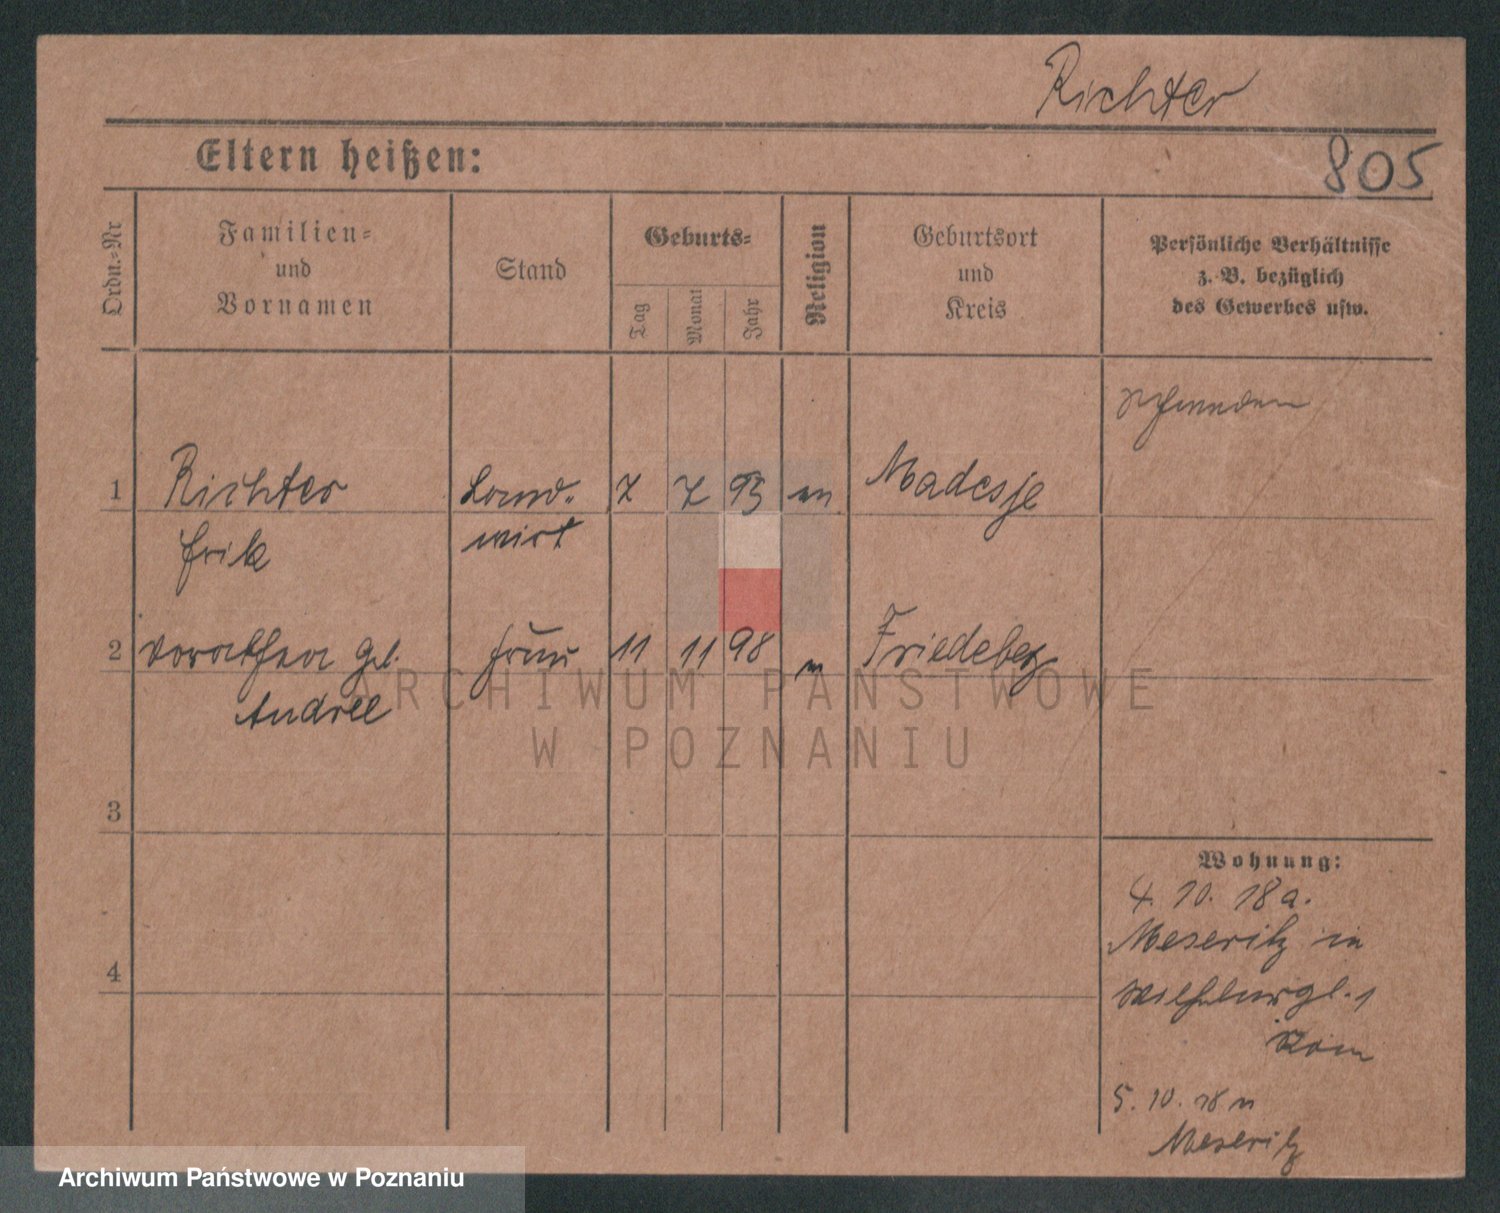 Richter
805
Eltern heißen:
Ordn.-Nr
Familien-
und
Vornamen
Stand
Geburts-
Tag
Monat
Jahr
Religion
Geburtsort
und
Kreis
Persönliche Verhältnisse
z. B. bezüglich
des Gewerbes usw.
1 Richter Land- 7 7 93 Madesje
Erik wirt
2 Dorothea geb. Frau 11 11 98 Friedeberg
Andree
ARCHIWUM PAŃSTWOWE
W POZNANIU
3
4
Wohnung:
4. 10. 18 a.
Meseritz in
5. 10. 18 n
Meseritz
Archiwum Państwowe w Poznaniu